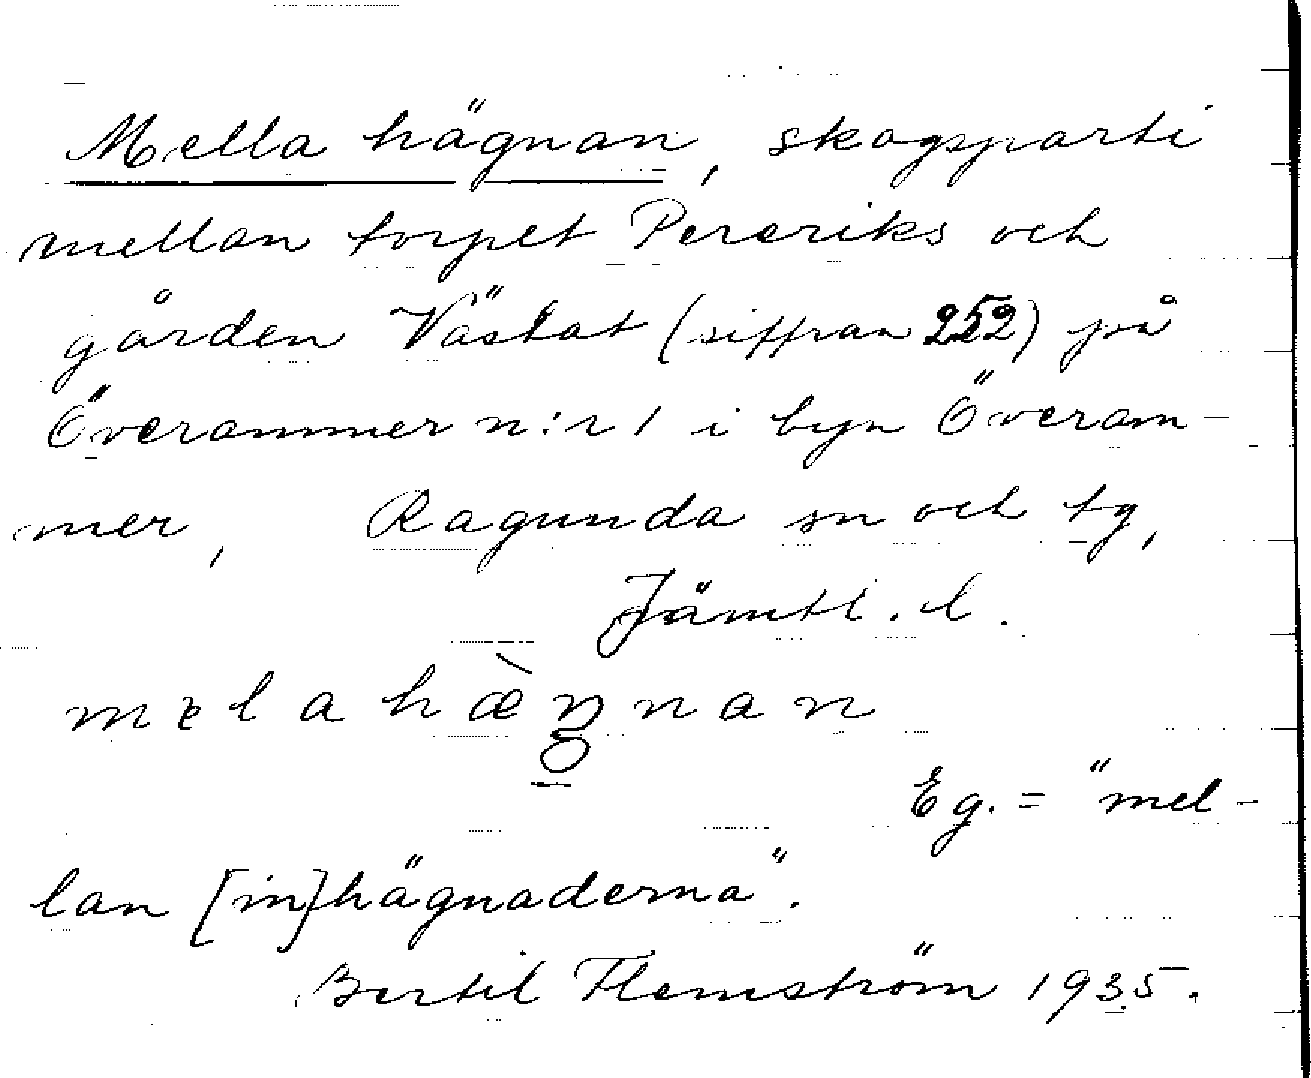 Mella hägnan, skogsparti
mellan torpet Pereriks och
gården Västat (siffran 252) på
Överammer n:r 1 i byn Överam-
mer, Ragunda sn och tg,
Jämtl. l.
mɛlahæ̀ŋnan
Eg. = "mel-
lan [in]hägnaderna".
Bertil Flemström 1935.